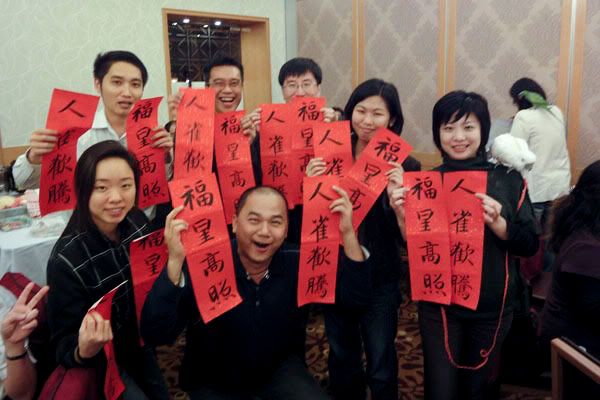 人雀歡騰
福星高照
人雀歡
福星高照
人雀歡騰
福星高
人雀
福星高照
人雀歡騰
福星
福星高照
人雀歡騰